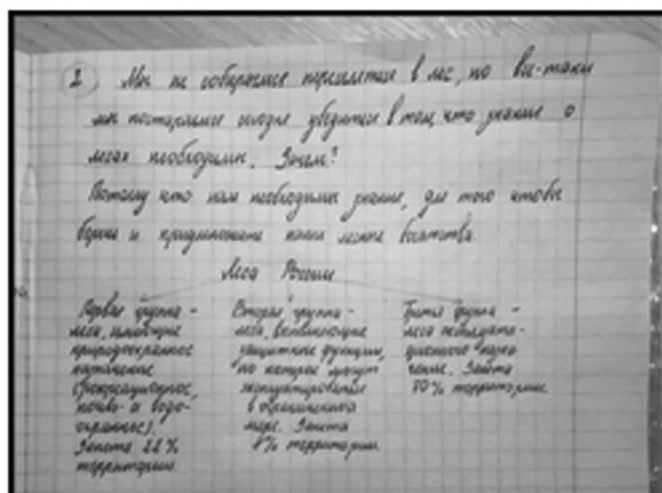 2 Мы не собираемся переселятся в лес, но все-таки
мы постараемся сегодня убедится в том, что знание о
лесах необходимы. Зачем?
Потому что нам необходимы знание, для того чтобы
беречи и наши лесные богатства.
Леса России
Первая группа -
леса, имеющие
природоохранное
назначение
(рекреационное,
почво- и водо-
охранное).
Занято 22%
территории.
Вторая группа -
леса, выполняющие
защитные функции,
но которые могут
эксплуатироваться
в ограниченной
мере. Занято
8% территории.
Третья группа -
леса эксплуата-
ционного назна
чение. Занято
70% территории.